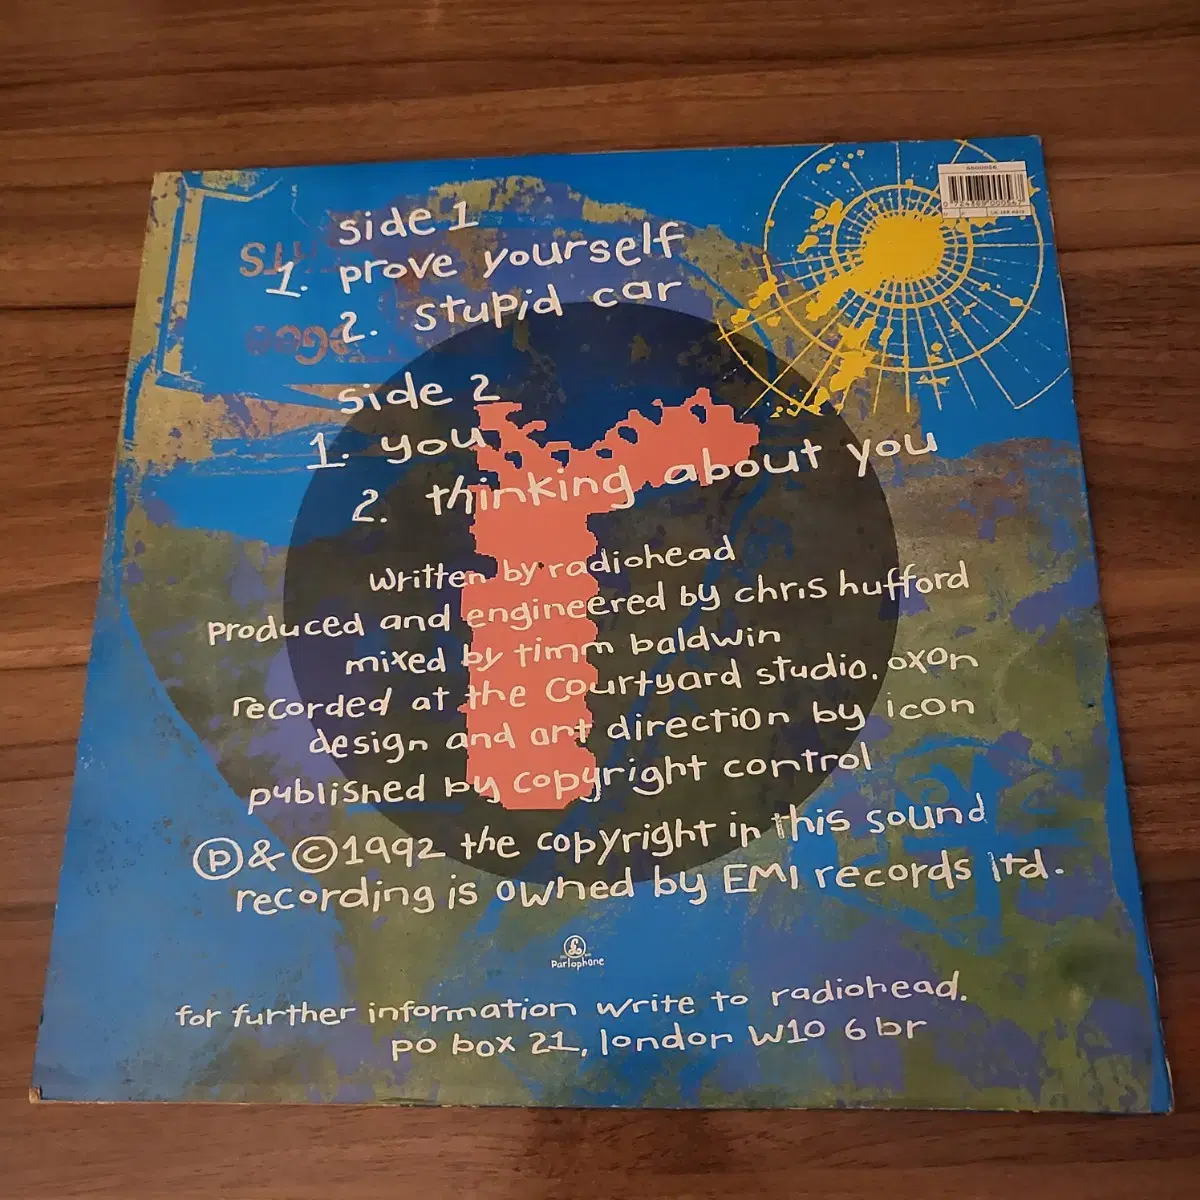 side 1
1. prove yourself
2. stupid car
side 2
1. you
2. thinking about you
written by radiohead
produced and engineered by chris hufford
mixed by timm baldwin
recorded at the courtyard studio. oxon
design and art direction by icon
published by copyright control
Ⓟ & © 1992 the copyright in this sound
recording is owned by EMI records ltd.
Parlophone
for further information write to radiohead.
po box 21, london W10 6br